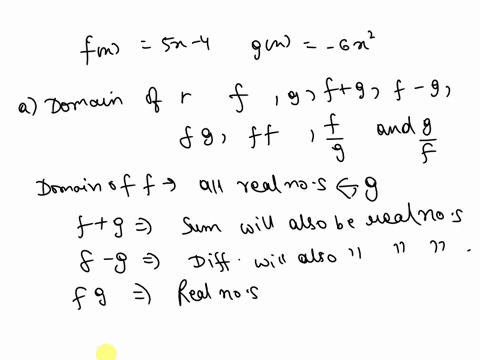 f(x) = 5x-4 g(x) = -6x²
a) Domain of r f , g, f+g, f-g,
fg, ff , f/g and g/f
Domain of f → all real no.s ↩ g
f+g ⇒ Sum will also be real no.s
f-g ⇒ Diff. will also " " " .
fg ⇒ Real no.s